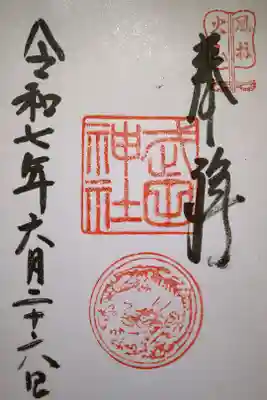 風林
火山
奉拝
武田
神社
令和七年六月二十八日